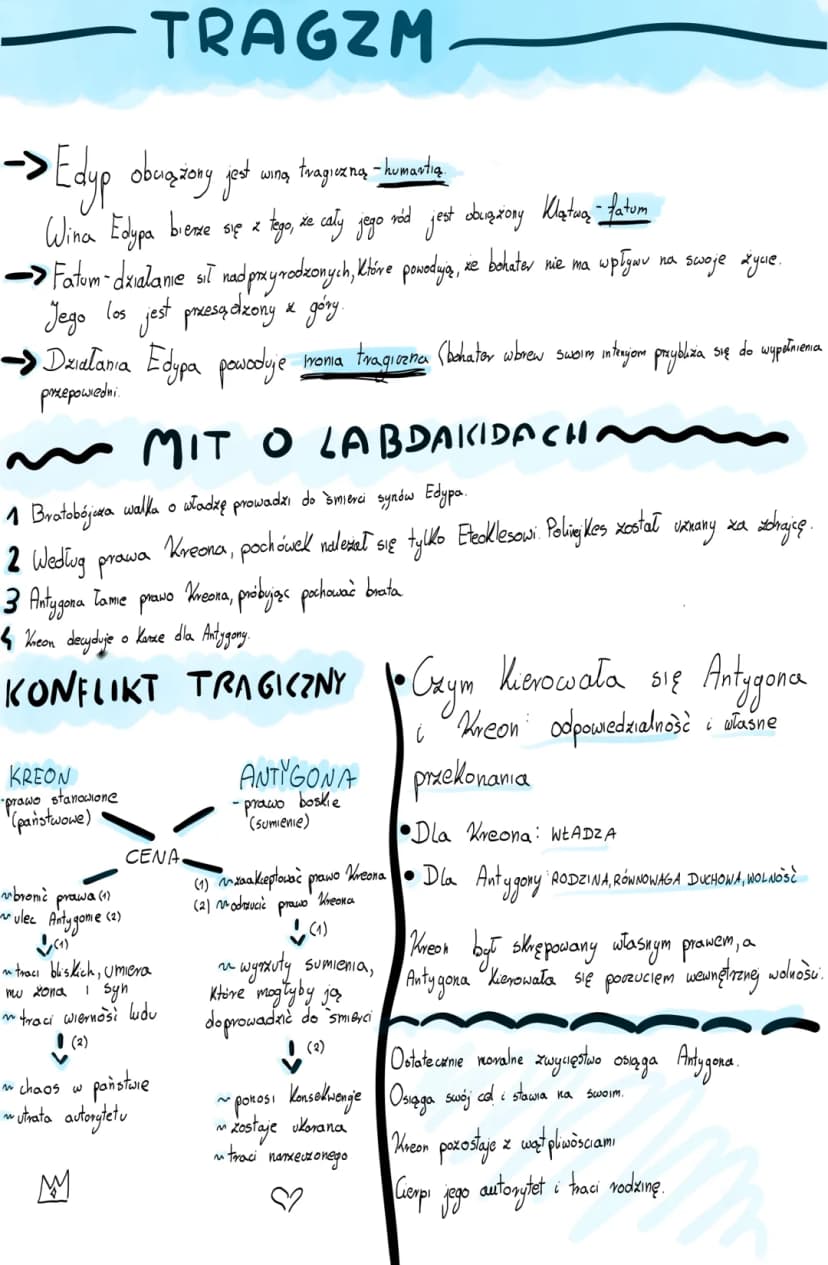 TRAGZM
-> Edyp obciążony jest winą tragiczną - humartią
Wina Edypa bierze się z tego, że cały jego ród jest obciążony klątwą - fatum
-> Fatum - działanie sił nadprzyrodzonych, które powodują, że bohater nie ma wpływu na swoje życie.
Jego los jest przesądzony z góry.
-> Działania Edypa powoduje ironia tragiczna (bohater wbrew swoim intencjom przybliża się do wypełnienia
przepowiedni.
MIT O LABDAKIDACH
1 Bratobójcza walka o władzę prowadzi do śmierci synów Edypa.
2 Według prawa Kreona, pochówek należał się tylko Eteoklesowi. Polinejkes został uznany za zdrajcę.
3 Antygona łamie prawo Kreona, próbując pochować brata
4 Kreon decyduje o karze dla Antygony.
KONFLIKT TRAGICZNY
KREON
- prawo stanowione
(państwowe)
ANTYGONA
- prawo boskie
(sumienie)
CENA
~ bronić prawa (1)
~ ulec Antygonie (2)
↓ (1)
~ traci bliskich, umiera
mu żona i syn
~ traci wierność ludu
↓ (2)
~ chaos w państwie
~ utrata autorytetu
(1) ~ zaakceptować prawo Kreona
(2) ~ odrzucić prawo Kreona
↓ (1)
~ wyrzuty sumienia,
które mogłyby ją
doprowadzić do śmierci
↓ (2)
~ ponosi konsekwencje
~ zostaje ukarana
~ traci narzeczonego
• Czym kierowała się Antygona
i Kreon: odpowiedzialność i własne
przekonania
• Dla Kreona: WŁADZA
• Dla Antygony: RODZINA, RÓWNOWAGA DUCHOWA, WOLNOŚĆ
Kreon był skrępowany własnym prawem, a
Antygona kierowała się poczuciem wewnętrznej wolności.
Ostatecznie moralne zwycięstwo osiąga Antygona.
Osiąga swój cel i stawia na swoim.
Kreon pozostaje z wątpliwościami
Cierpi jego autorytet i traci rodzinę.